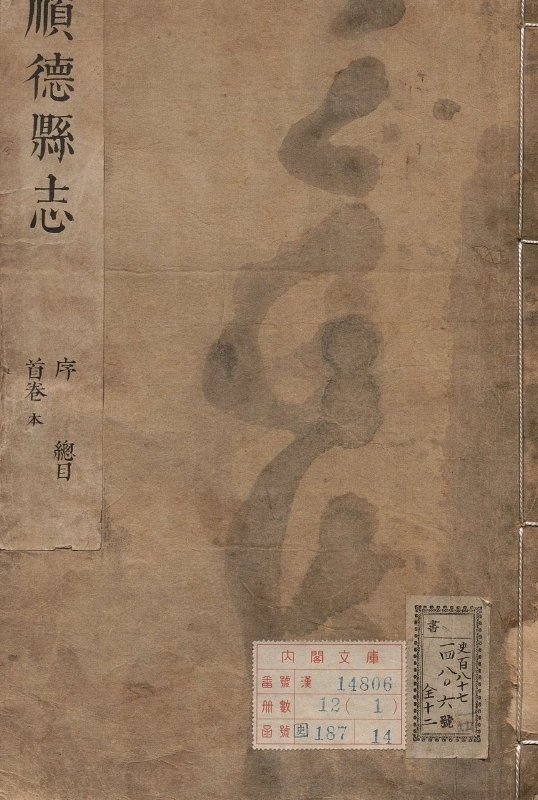 順德縣志
序 總目
首卷 本
內閣文庫
番號 漢 14806
冊數 12(1)
函號 史 187 14
書
史百八十七
一四八〇六號
全十二